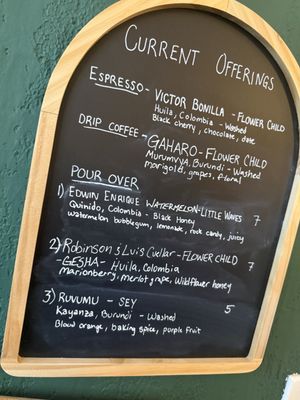 CURRENT OFFERINGS
ESPRESSO - VICTOR BONILLA - FLOWER CHILD
Huila, Colombia - Washed
Black cherry, chocolate, date
DRIP COFFEE - GAHARO - FLOWER CHILD
Muramvya, Burundi - Washed
marigold, grapes, floral
POUR OVER
1) EDWIN ENRIQUE WATERMELON - LITTLE WAVES 7
Quinido, Colombia - Black Honey
watermelon bubblegum, lemonade, rock candy, juicy
2) Robinson & Luis Cuellar - FLOWER CHILD
- GESHA - Huila, Colombia 7
Marionberry, merlot grape, wildflower honey
3) RUVUMU - SEY 5
Kayanza, Burundi - Washed
Blood orange, baking spice, purple fruit